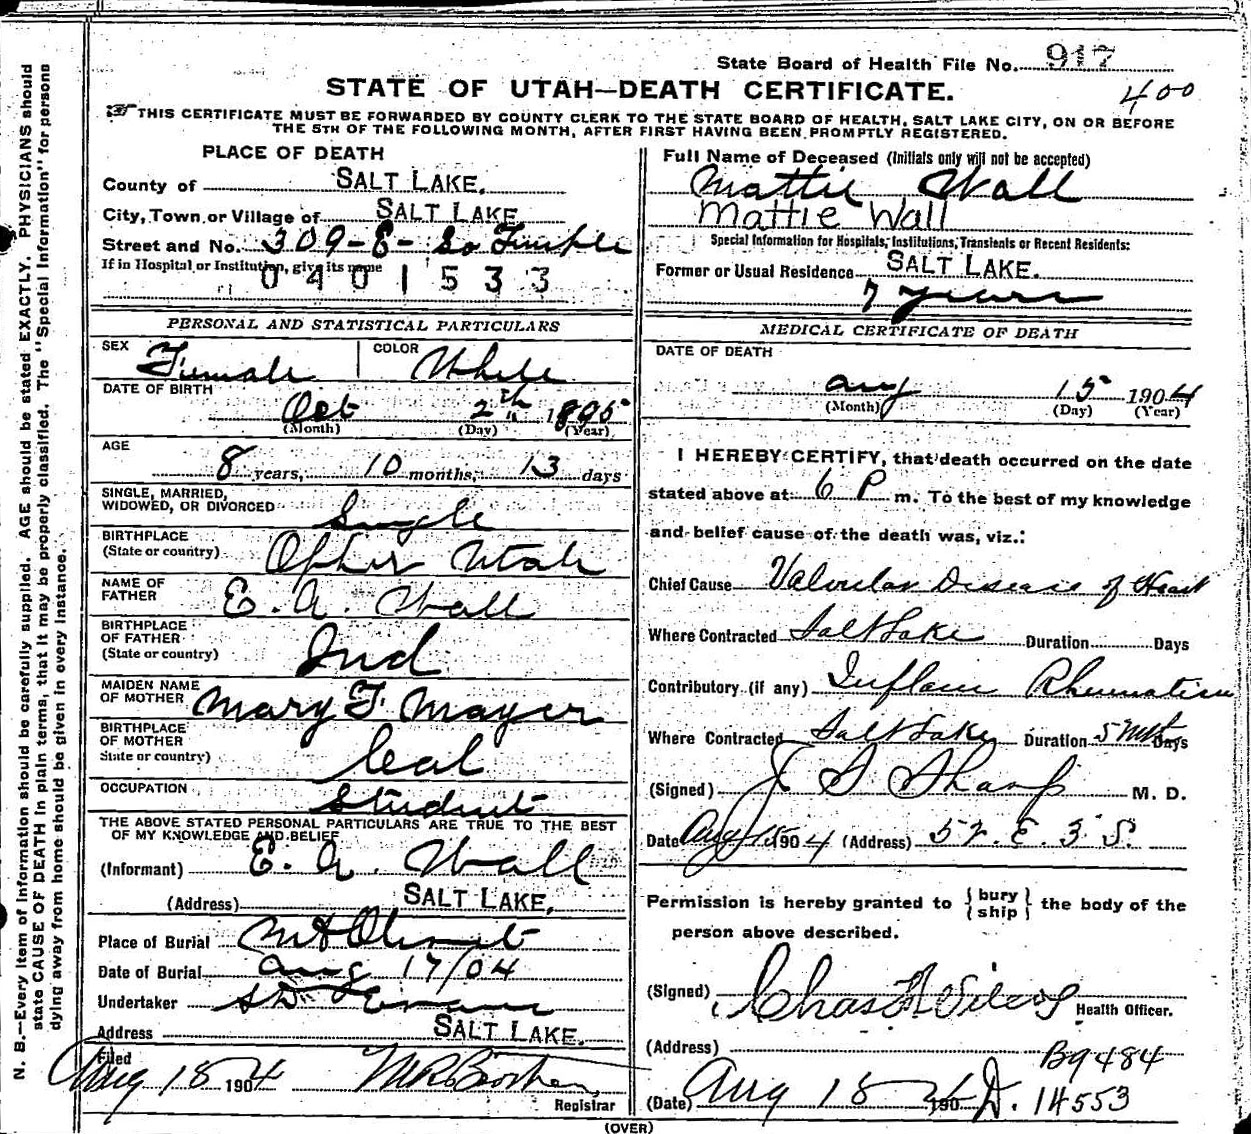 State Board of Health File No. 917
400
STATE OF UTAH—DEATH CERTIFICATE.
THIS CERTIFICATE MUST BE FORWARDED BY COUNTY CLERK TO THE STATE BOARD OF HEALTH, SALT LAKE CITY, ON OR BEFORE
THE 5TH OF THE FOLLOWING MONTH, AFTER FIRST HAVING BEEN PROMPTLY REGISTERED.
N. B.—Every item of information should be carefully supplied. AGE should be stated EXACTLY. PHYSICIANS should
state CAUSE OF DEATH in plain terms, that it may be properly classified. The "Special Information" for persons
dying away from home should be given in every instance.
PLACE OF DEATH
County of SALT LAKE.
City, Town or Village of SALT LAKE
Street and No. 309-E- So Temple
If in Hospital or Institution, give its name
0401533
PERSONAL AND STATISTICAL PARTICULARS
SEX Female COLOR White
DATE OF BIRTH
Oct 2th 1895
(Month) (Day) (Year)
AGE
8 years, 10 months, 13 days
SINGLE, MARRIED,
WIDOWED, OR DIVORCED Single
BIRTHPLACE
(State or country) Ophir Utah
NAME OF
FATHER E. A. Wall
BIRTHPLACE
OF FATHER
(State or country) Ind
MAIDEN NAME
OF MOTHER Mary F. Mayer
BIRTHPLACE
OF MOTHER
State or country) Cal
OCCUPATION Student
THE ABOVE STATED PERSONAL PARTICULARS ARE TRUE TO THE BEST
OF MY KNOWLEDGE AND BELIEF
(Informant) E. A. Wall
(Address) SALT LAKE.
Place of Burial Mt Olivet
Date of Burial Aug 17/04
Undertaker S D Evans
Address SALT LAKE.
Filed
Aug 18 1904
Registrar
Full Name of Deceased (Initials only will not be accepted)
Mattie Wall
Mattie Wall
Special Information for Hospitals, Institutions, Transients or Recent Residents:
Former or Usual Residence SALT LAKE.
7 years
MEDICAL CERTIFICATE OF DEATH
DATE OF DEATH
Aug 15 1904
(Month) (Day) (Year)
I HEREBY CERTIFY, that death occurred on the date
stated above at 6 P m. To the best of my knowledge
and belief cause of the death was, viz.:
Chief Cause Valvular Disease of Heart
Where Contracted Salt Lake Duration Days
Contributory (if any) Inflam Rheumatism
Where Contracted Salt Lake Duration 5 Mths Days
(Signed) J S Sharp M. D.
Date Aug 18 1904 (Address) 52. E. 3 S.
Permission is hereby granted to {bury
ship} the body of the
person above described.
(Signed) Chas Wilcox Health Officer.
(Address) B9484
(Date) Aug 18 1904 D. 14553
(OVER)